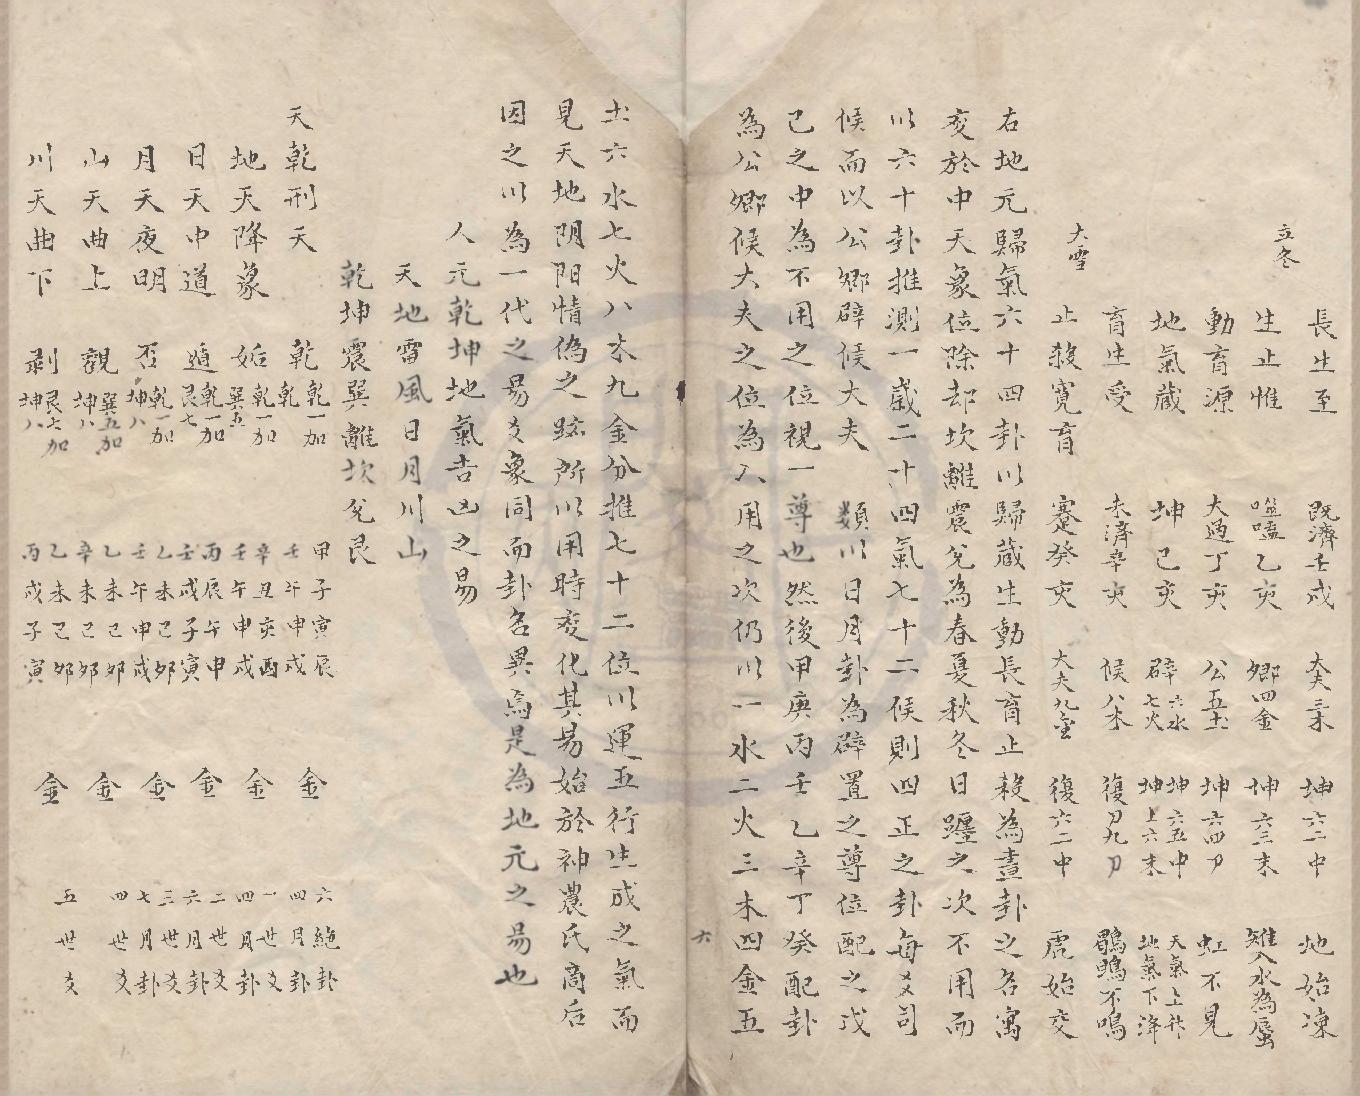 長生至 既濟壬戌 大夫三木 坤六二中 地始凍
立冬 生止惟 噬嗑乙亥 卿四金 坤六三末 雉入水為蜃
動育源 大過丁亥 公五土 坤六四初 虹不見
地氣藏 坤己亥 辟六水七火 坤六五中坤上六末 天氣上升地氣下降
育生受 未濟辛亥 候八木 復初九初 鶡鴠不鳴
大雪 止殺寬育 蹇癸亥 大夫九金 復六二中 虎始交
右地元歸氣六十四卦以歸藏生動長育止殺為畫卦之名寓
爻於中天象位除却坎離震兌為春夏秋冬日躔之次不用而
以六十卦推測一歲二十四氣七十二候則四正之卦每爻司
候而以公卿辟候大夫 類以日月卦為辟置之尊位配之戊
己之中為不用之位視一尊也然後甲庚丙壬乙辛丁癸配卦
為公卿候大夫之位為入用之次仍以一水二火三木四金五
六
土六水七火八木九金分推七十二位以運五行生成之氣而
見天地阴阳情偽之跡所以用時変化其易始於神農氏高后
因之以為一代之易爻象同而卦名異焉是為地元之易也
人元乾坤地氣吉凶之易
天地雷風日月川山
乾坤震巽離坎兌艮
天乾刑天 乾 乾一加乾 甲子寅辰壬午申戌 金 六絕卦四月卦
地天降蒙 姤 乾一加巽五 辛丑亥酉壬午申戌 金 一世爻四月卦
日天中道 遁 乾一加艮七 丙辰午申壬戌子寅 金 二世爻六月卦
月天夜明 否 乾一加坤八 乙未己卯壬午申戌 金 三世爻七月卦
山天曲上 觀 巽五加坤八 乙未己卯辛未己卯 金 四世爻
川天曲下 剥 艮七加坤八 乙未己卯丙戌子寅 金 五世爻